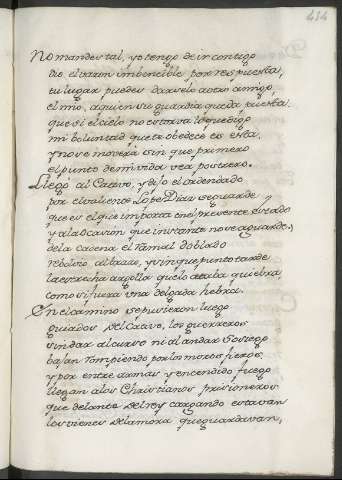 414
No mandes tal, yo tengo de ir contigo
dio el varon imbencible por respuesta,
tu lugar puedes darselo a otro amigo,
el mio, aquien su guardia queda puesta.
que si el cielo no estorva lo que digo
mi boluntad que te obedece es esta,
y no se moverá sin que primero
el punto de mi vida vea postrero.
Llego al Cautivo, y dijo el ordendado
por el valiente Lope Diaz se guarde
que es el que importa en el presente
y a la ocasion que instante no se aguarde,
de la cadena el ramal doblado
rebolvio al brazo, y sin que punto tarde
la derecha argolla que lo ataba quiebra
como si fuera una delgada hebra.
En el camino se pusieron luego
guiados del Cautivo, los guerreros
sin dar al curso ni al andar sosiego
bajan rompiendo por los moros fieros,
y por entre armas y encendido fuego
llegan a los Christianos prisioneros
que delante del rey cargando estavan
los vienes de la mora que guardavan,